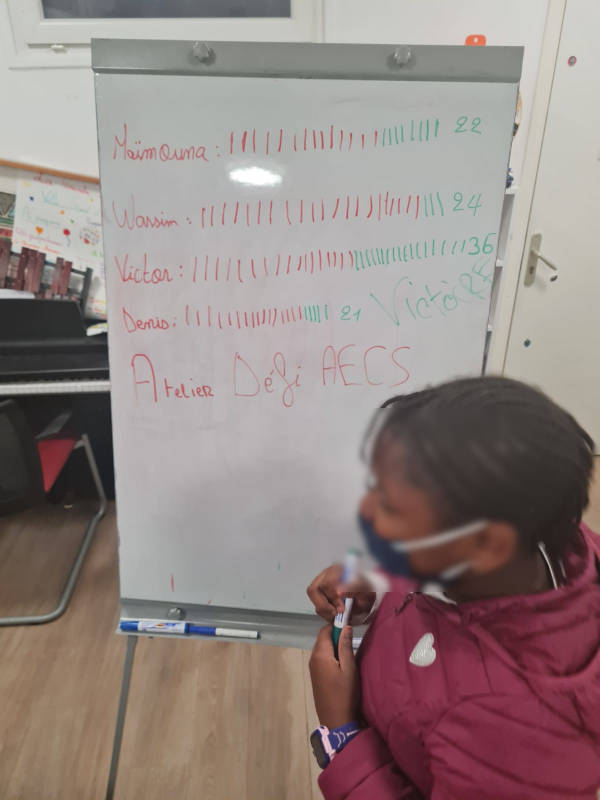 Maïmouna : 22
Wassim : 24
Victor : 36
Denis : 21 Victoire
Atelier Défi AECS